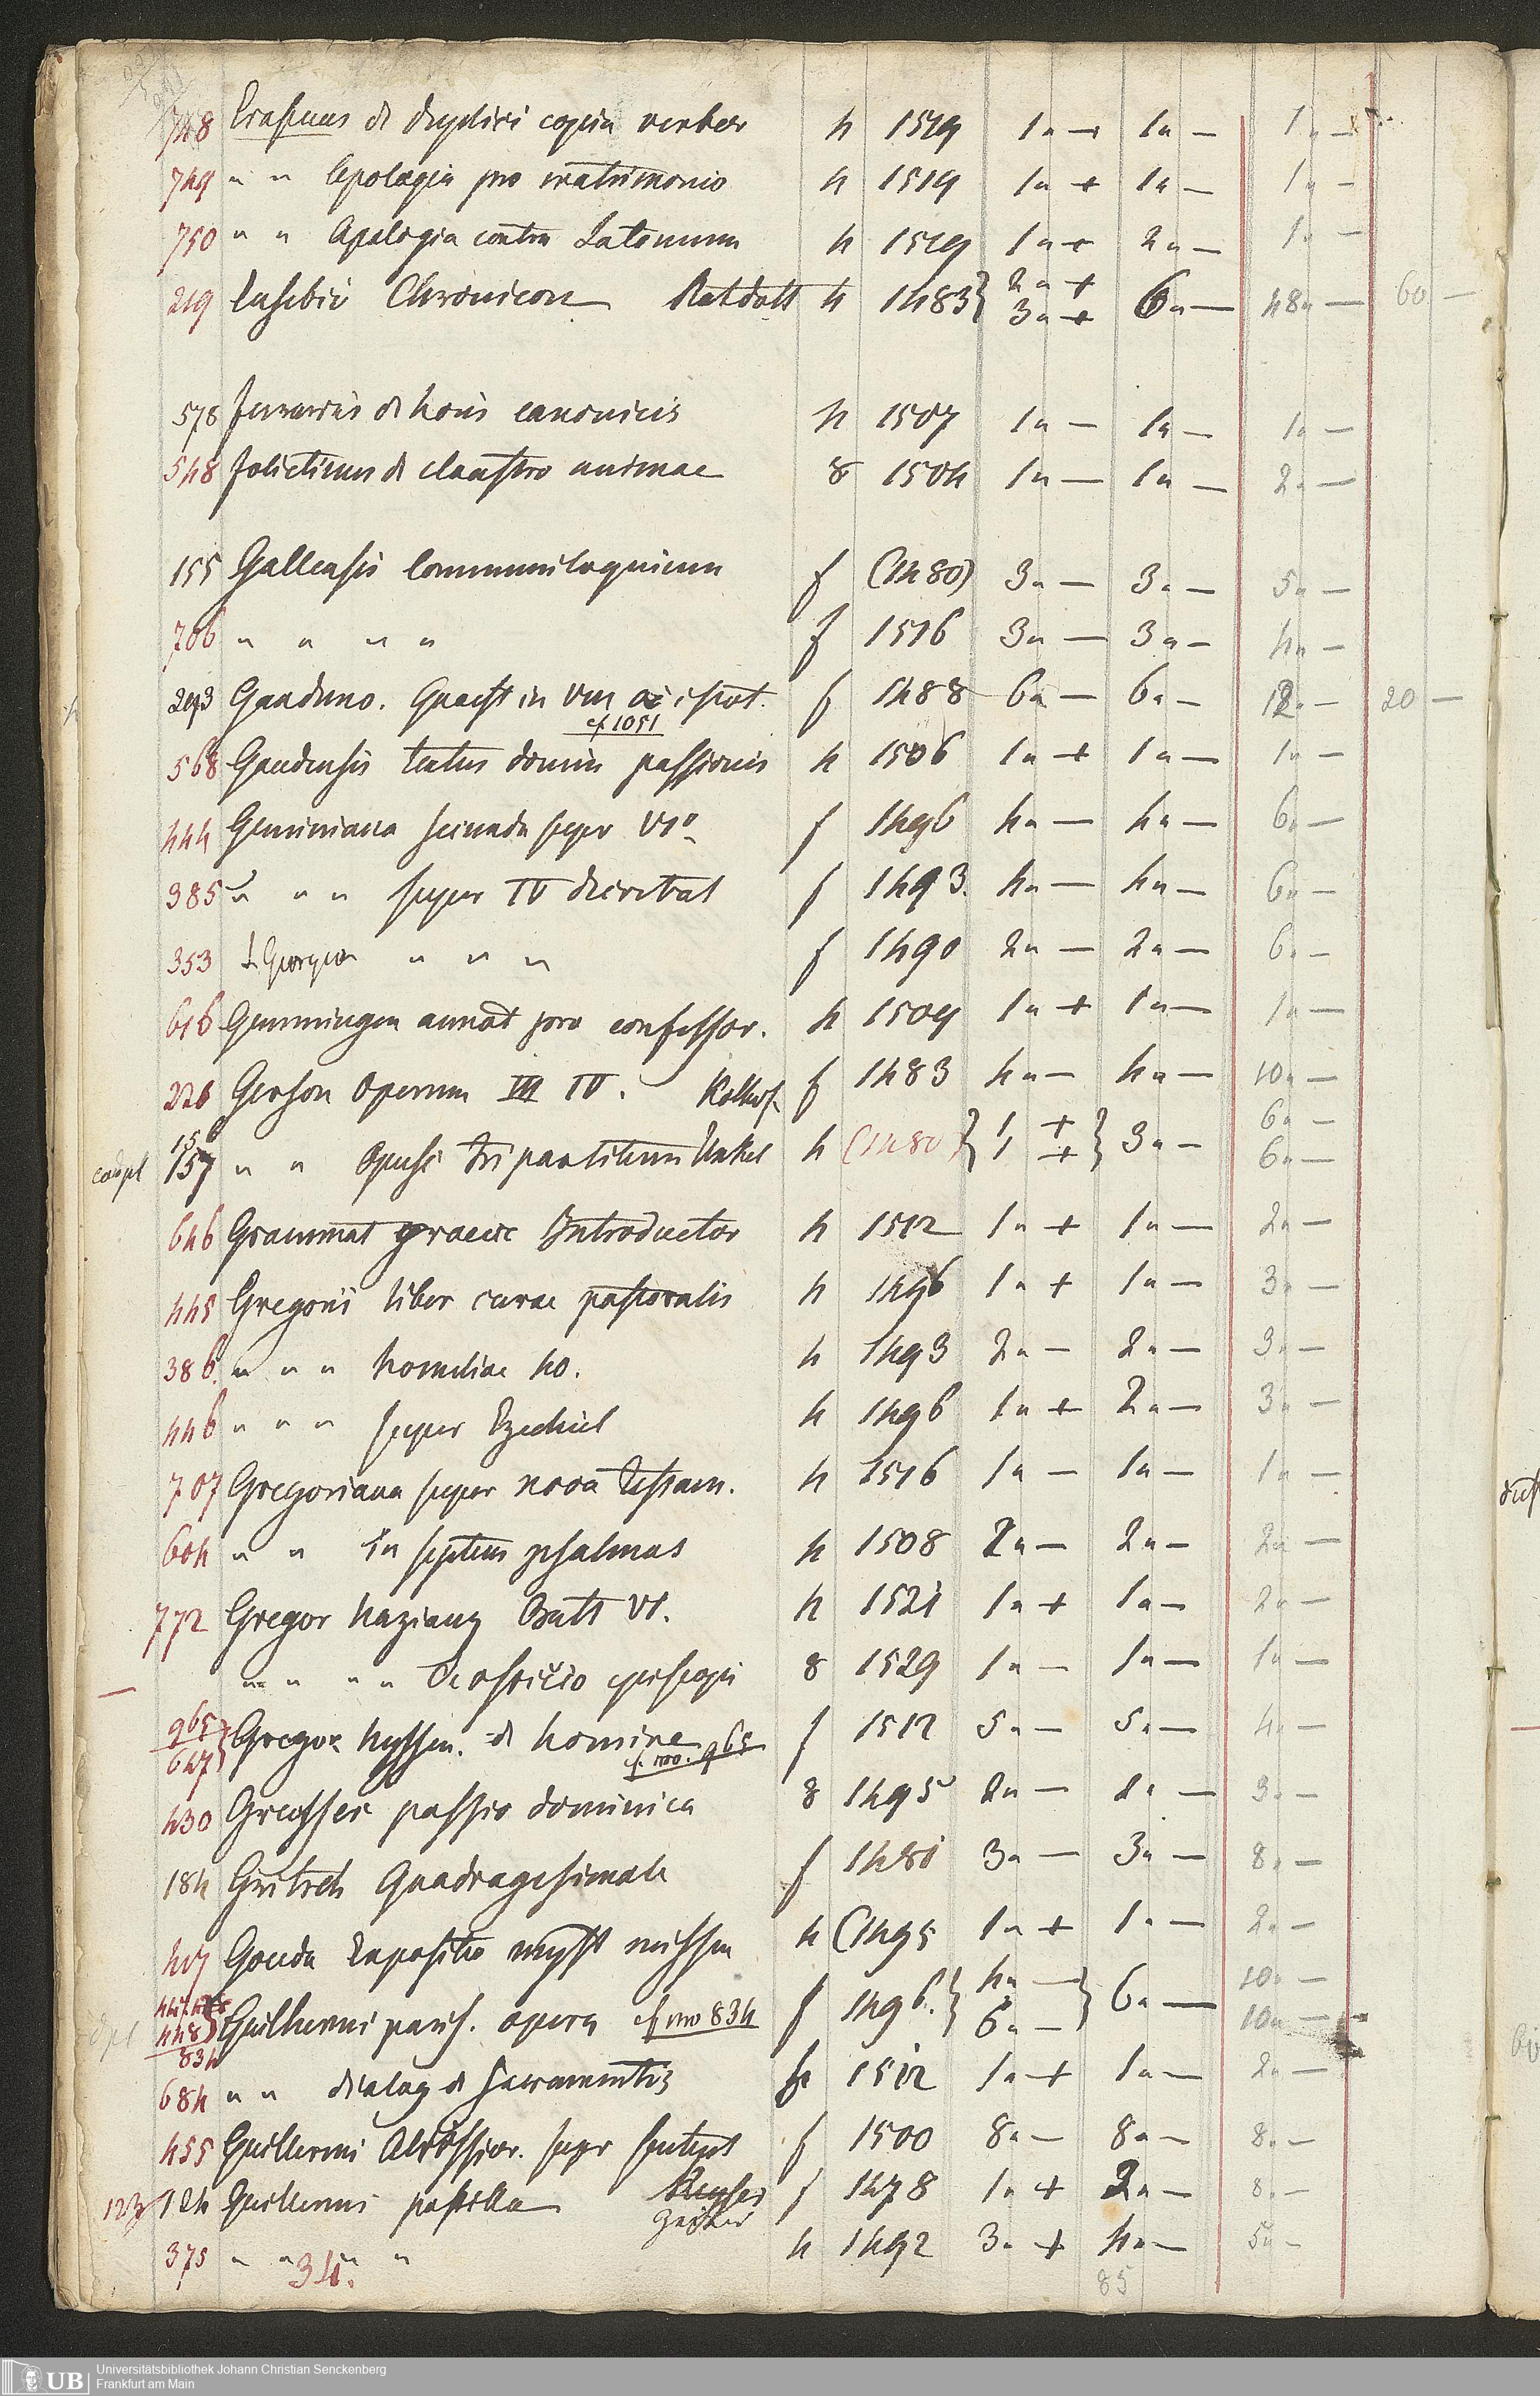 748 Erasmus de duplici copia verbor 4 1519 1 " + 1 " — 1 " —
749 " " Apologia pro matrimonio 4 1519 1 " + 1 " — 1 " —
750 " " Apologia contra Latomum 4 1519 1 " + 2 " — 1 " —
219 Eusebii Chronicon Ratdolt 4 1483 } 2 " + 3 " + 6 " — 48 " — 60 —
578 de horis canonicis 4 1507 1 " — 1 " — 1 " —
548 de claustro animae 8 1504 1 " — 1 " — 2 " —
155 Gallensis Communiloquium f (1480) 3 " — 3 " — 5 " —
706 " " " " f 1516 3 " — 3 " — 4 " —
293 Ganduno. Quaest in f 1488 6 " — 6 " — 12 " — 20 —
cf 1051
568 Gaudensis domin passionis 4 1506 1 " + 1 " — 1 " —
444 Geminiano secunda super VI° f 1496 4 " — 4 " — 6 " —
385 " " " super IV decretal f 1493. 4 " — 4 " — 6 " —
353 S. Georgio " " " f 1490 2 " — 2 " — 6 " —
616 Gemmingen annot pro confessor. 4 1509 1 " + 1 " — 1 " —
226 Gerson Operum III IV. f 1483 4 " — 4 " — 10 " —
compl 156 157 " " Opusc tripartitum Unkel 4 (1480) } 1 + 1 + } 3 " — 6 " — 6 " —
646 Grammat graecae Introductor 4 1512 1 " + 1 " — 2 " —
445 Gregorii liber curae pastoralis 4 1496 1 " + 1 " — 3 " —
386. " " " homiliae 40. 4 1493 2 " — 2 " — 3 " —
446 " " " super Ezechiel 4 1496 1 " + 2 " — 3 " —
707 Gregoriana super nova testam. 4 1516 1 " — 1 " — 1 " —
604 " " In septem psalmos 4 1508 2 " — 2 " — 2 " —
772 Gregor Nazianz Oratt VI. 4 1521 1 " + 1 " — 2 " —
— " " " " De officio episcopi 8 1529 1 " — 1 " — 1 " —
965 647 } Gregor Nyssen. de homine f 1512 5 " — 5 " — 4 " —
cf. no. 965
430 passio dominica 8 1495 2 " — 2 " — 3 " —
184 Gritsch Quadragesimale f 1481 3 " — 3 " — 8 " —
407 Gouda Expositio myst missae 4 (1495 1 " + 1 " — 2 " —
448 834 Guillermi paris. opera cf no 834 f 1496. } 4 " — 6 " — } 6 " — 10 " — 10 " —
684 " " dialog de Sacramentis 4 1512 1 " + 1 " — 2 " —
455 Guillermi Altissior. super sentent f 1500 8 " — 8 " — 8 " —
123 124 Guillermi postilla f 1478 1 " + 2 " — 8 " —
375 " " " " 4 1492 3 " + 4 " — 5 " —
34. 85
UB Universitätsbibliothek Johann Christian Senckenberg
Frankfurt am Main